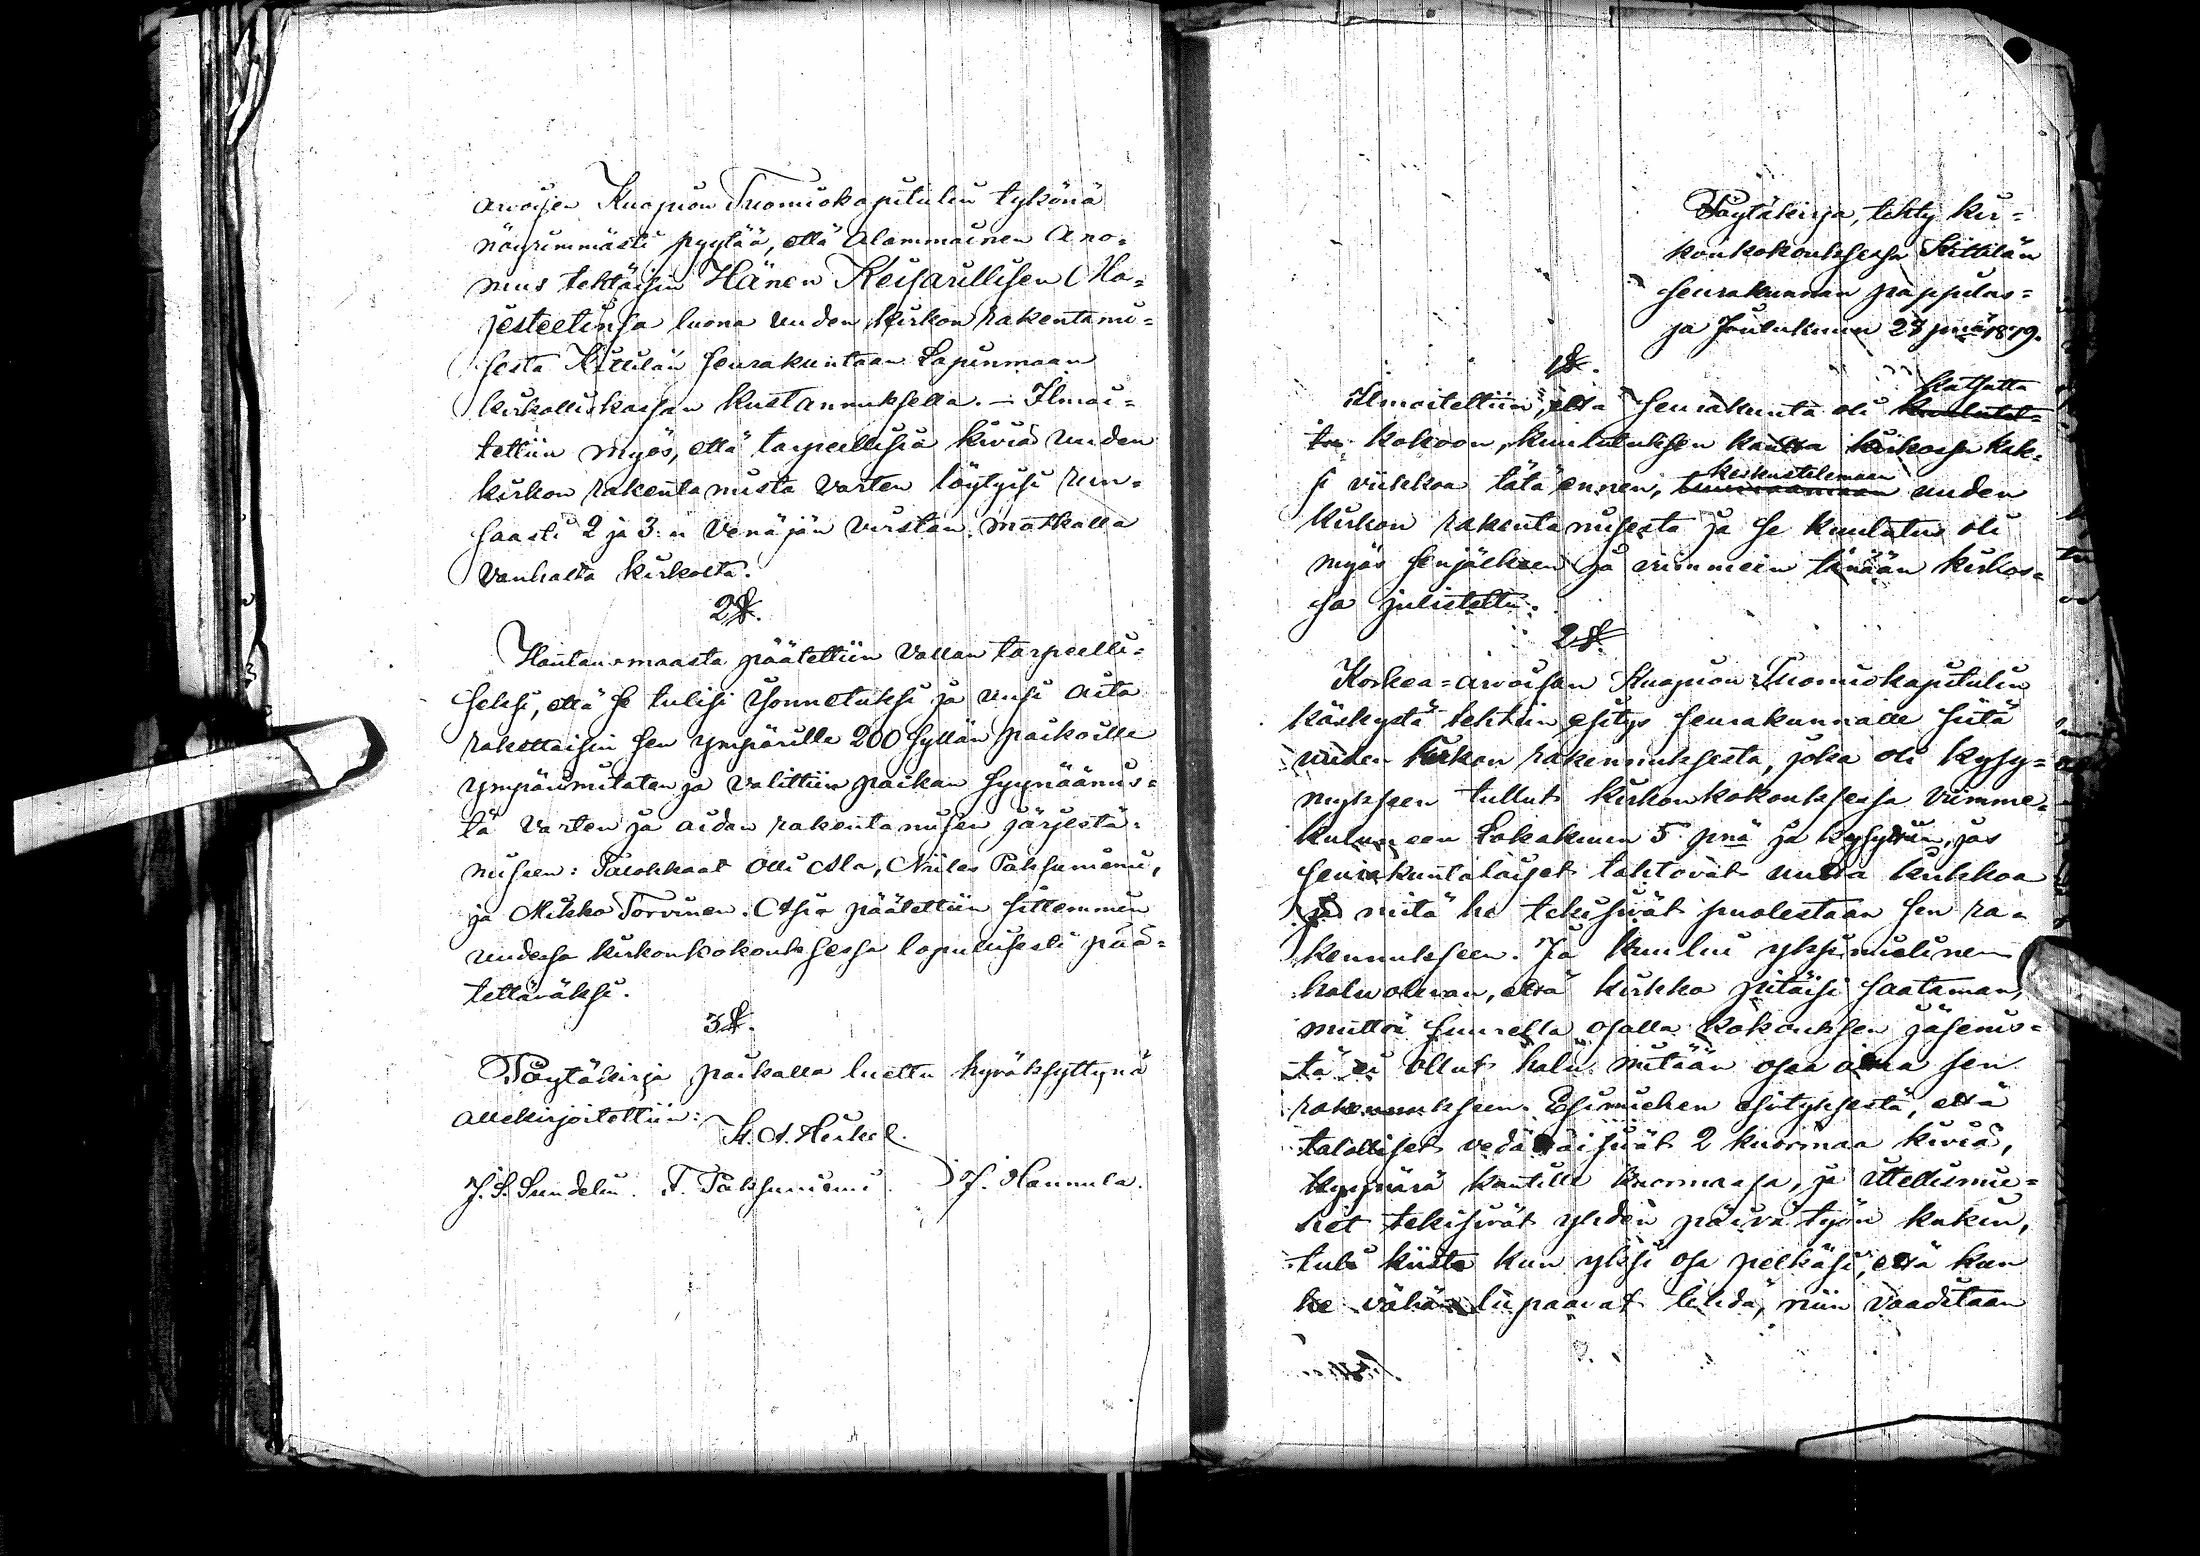 arvoisen Kuopion Tuomiokapitulin tykönä
nöyrimmästi pyytää, että alammainen ano=
mus tehtäisiin Hänen Keisarillisen Ma=
jesteetinsa luona uuden kirkon rakentami=
sesta Kittilän seurakuntaan Lapinmaan
kirkolliskassan kustannuksella. – Ilmoi=
tettiin myös, että tarpeellisia kiviä uuden
kirkon rakentamista varten löytyisi run=
saasti 2 ja 3:n Venäjän virstan matkalla
vanhalta kirkolta.
2 §.
Hautausmaasta päätettiin vallan tarpeelli=
seksi, että se tulisi ja uusi aita
rakettaisiin sen ympärille 200 syllän paikoille
ympärimitaten ja valittiin paikan syynäämis=
tä varten ja aidan rakentamisen järjestä=
miseen: Talokkaat Olli Ala, Niilas Paksuniemi,
ja Mikko Torvinen. Asia päätettiin sittemmin
uudessa kirkonkokouksessa lopullisesti pää=
tettäväksi.
3 §.
Pöytäkirja paikalla luettu hyväksyttynä
allekirjoitettiin:
K. A. Heikel.
J. S. Sundelin. F. Paksuniemi. J. Hannula.
Pöytäkirja, tehty kir=
konkokouksessa Kittilän
seurakunnan pappilas=
sa Joulukuun 28 pnä 1879.
1 §.
Ilmoitettiin, että seurakunta oli kutsuttu
kokoon, kuulutuksen kautta kirkossa kak=
si viikkoa tätä ennen, keskustelemaan uuden
kirkon rakentamisesta ja se kuulutus oli
myös senjälkeen ja viimmein tänään kirkos=
sa julistettu.
2 §.
Korkea=arvoisan Kuopion Tuomiokapitulin
käskystä tehtiin esitys seurakunnalle siitä
uuden kirkon rakennuksesta, joka oli kysy=
mykseen tullut kirkonkokouksessa viimme=
kuluneen Lokakuun 5 pnä ja kysyttiin, jos
seurakuntalaiset tahtovat uutta kirkkoa
ja mitä he tekisivät puolestaan sen ra=
kennukseen. Ja kuului yksimielinen
halu olevan, että kirkko pitäisi saataman,
mutta suurella osalla kokouksen jäsenis=
tä ei ollut halu mitään osaa ottaa sen
rakennukseen. Esimiehen esityksestä, että
talolliset vedättäisivät 2 kuormaa kiviä,
kyynärä kantilla kuormassa, ja itellismie=
het tekisivät yhden päivä työn kukin,
tuli kiista kun yksi osa pelkäsi, että kun
he vähän lupaavat tehdä, niin vaaditaan